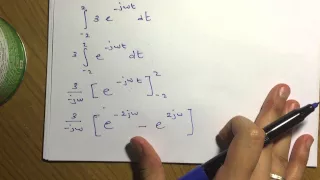 ∫_{-2}^{2} 3 e^{-jωt} dt
3 ∫_{-2}^{2} e^{-jωt} dt
3/-jω [e^{-jωt}]_{-2}^{2}
3/-jω [e^{-2jω} - e^{2jω}]